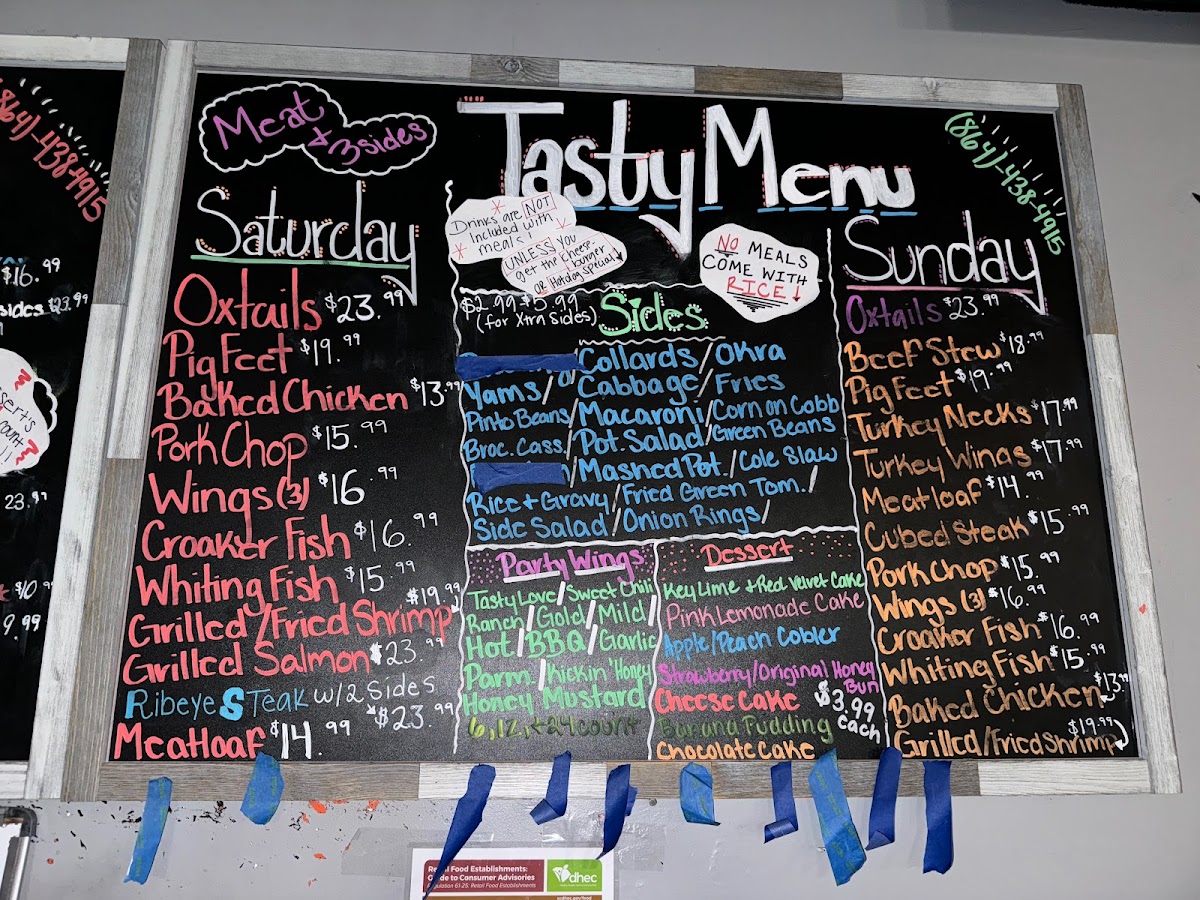 (864)-438-4915
$16.99
sides $23.99
23.99
$10.99
9.99
Meat
& 3 sides
Tasty Menu
(864)-438-4915
Saturday
Oxtails $23.99
Pig Feet $19.99
Baked Chicken $13.99
Pork Chop $15.99
Wings (3) $16.99
Croaker Fish $16.99
Whiting Fish $15.99
$19.99
Grilled/Fried Shrimp
Grilled Salmon $23.99
Ribeye Steak w/2 Sides
$23.99
Meatloaf $14.99
Drinks are NOT
Included with
meals!
UNLESS you
get the cheese-
burger
OR Hotdog special
NO MEALS
COME WITH
RICE!
$2.99-$5.99
(for Xtra Sides)
Sides
Collards/Okra
Yams/Cabbage/Fries
Pinto Beans/Macaroni/Corn on Cobb
Broc. Cass./Pot. Salad/Green Beans
Mashed Pot./Cole Slaw
Rice + Gravy/Fried Green Tom./
Side Salad/Onion Rings/
Party Wings
Tasty Love/Sweet Chili
Ranch/Gold/Mild/
Hot/BBQ/Garlic
Parm./Kickin' Honey
Honey Mustard
6, 12, + 24 count
Dessert
Key Lime + Red Velvet Cake
Pink Lemonade Cake
Apple/Peach Cobler
Strawberry/Original Honey
Bun
Cheese Cake
$3.99
each
Banana Pudding
Chocolate Cake
Sunday
Oxtails $23.99
Beef Stew $18.99
Pig Feet $19.99
Turkey Necks $17.99
Turkey Wings $17.99
Meatloaf $14.99
Cubed Steak $15.99
Pork Chop $15.99
Wings (3) $16.99
Croaker Fish $16.99
Whiting Fish $15.99
Baked Chicken $13.99
$19.99
Grilled/Fried Shrimp
Retail Food Establishments:
Guide to Consumer Advisories
Regulation 61-25: Retail Food Establishments
dhec